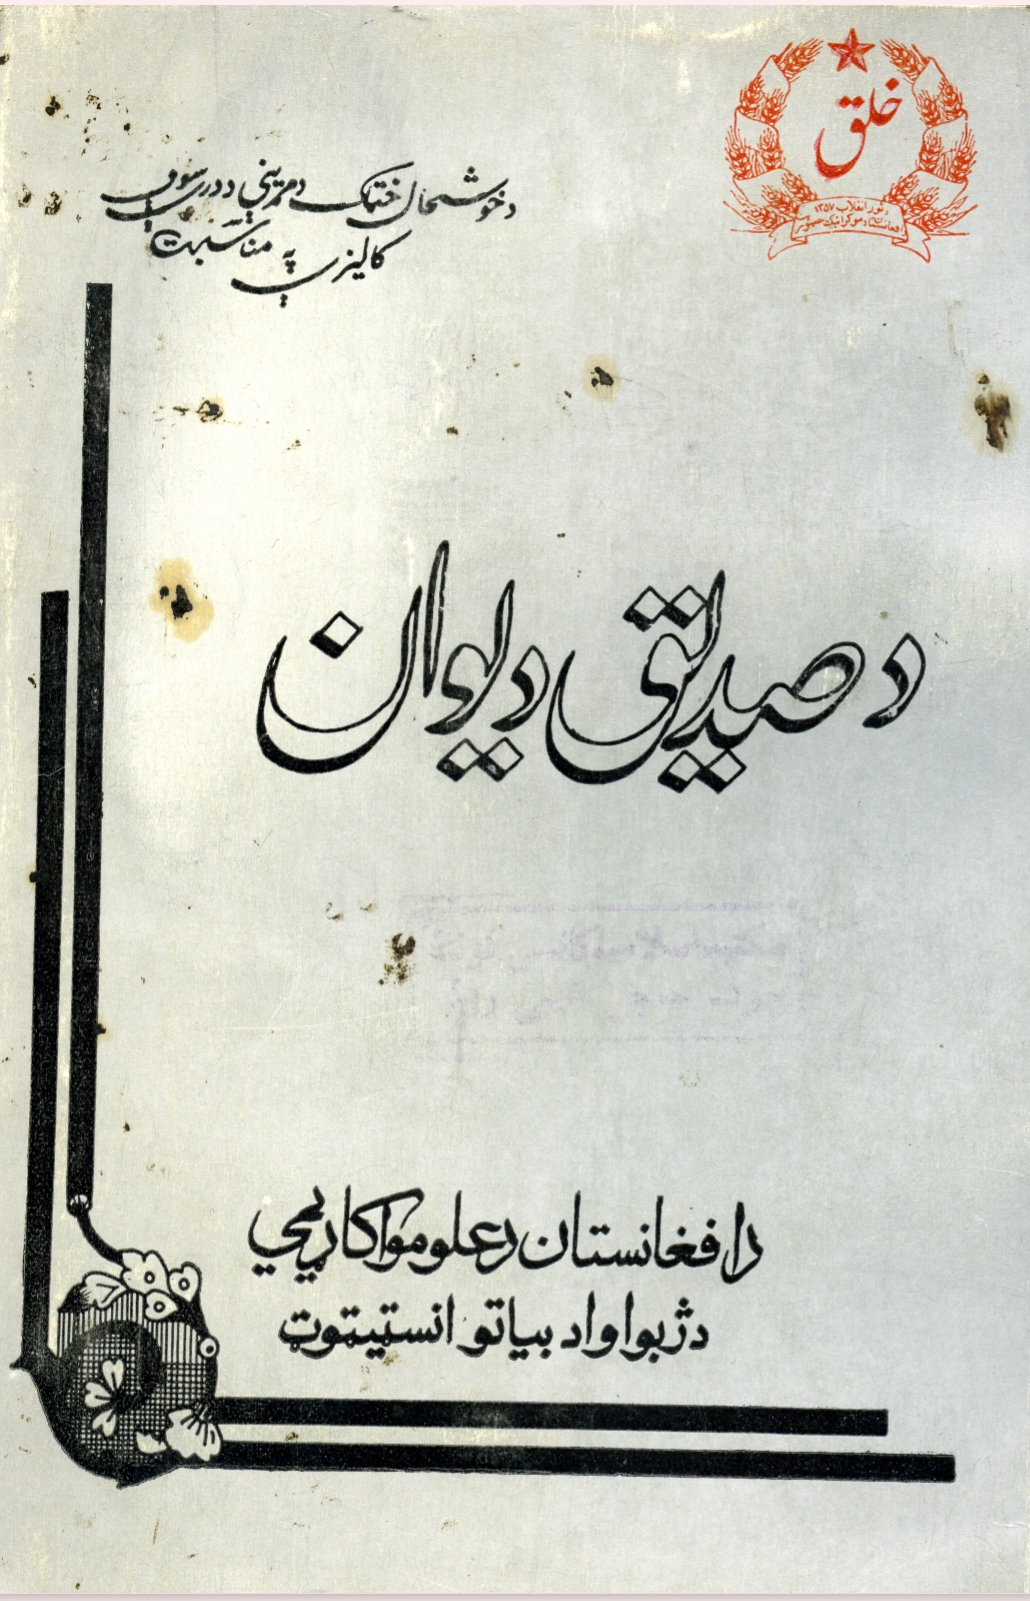 خلق
د ثور انقلاب ۱۳۵۷
د افغانستان دموکراتیک جمهوریت
د خوشحال خټک د مړینې د درې سوۍ
کالیزې په مناسبت
د صدیق دیوان
د افغانستان د علومو اکاډیمي
د ژبو او ادبیاتو انستیتوت